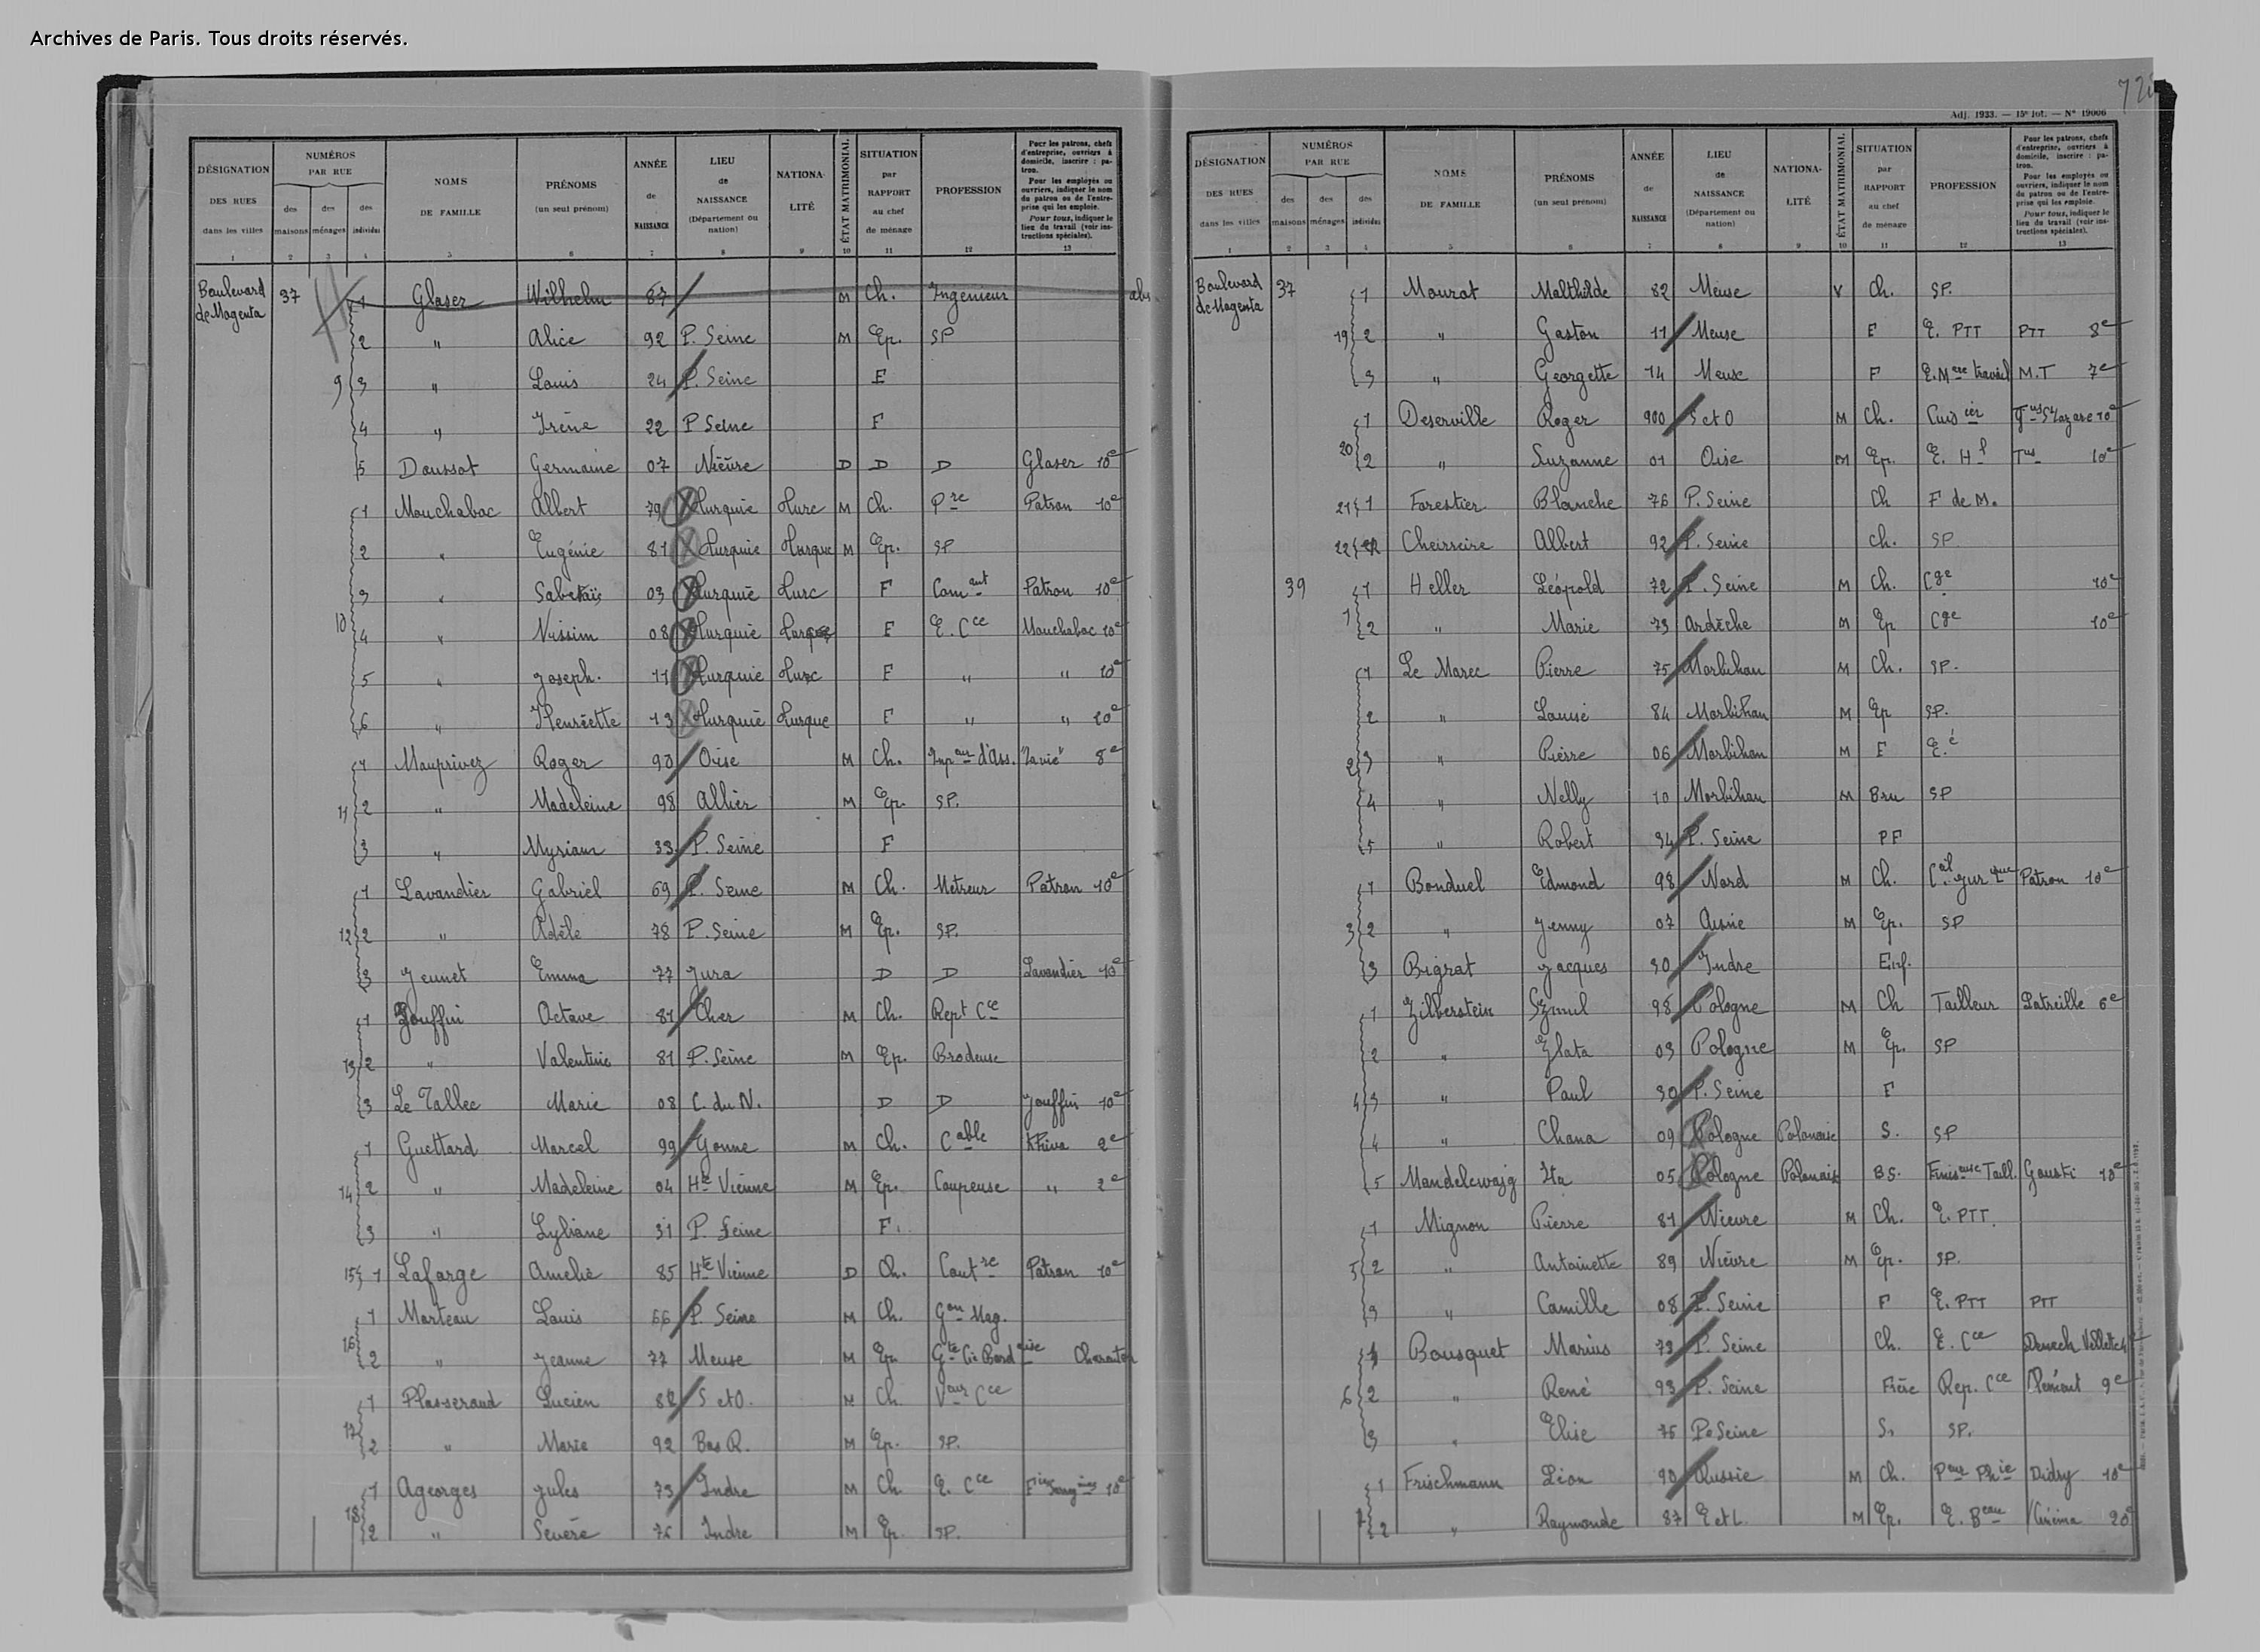 Archives de Paris. Tous droits réservés.
DÉSIGNATION DES RUES dans les villes 1
NUMÉROS PAR RUE des maisons 2 des ménages 3 des individus 4
NOMS DE FAMILLE 5
PRÉNOMS (un seul prénom) 6
ANNÉE de NAISSANCE 7
LIEU de NAISSANCE (Département ou nation) 8
NATIONALITÉ 9
ÉTAT MATRIMONIAL 10
SITUATION par RAPPORT au chef de ménage 11
PROFESSION 12
Pour les patrons, chefs d'entreprise, ouvriers à domicile, inscrire : patron.
Pour les employés ou ouvriers, indiquer le nom du patron ou de l'entreprise qui les emploie.
Pour tous, indiquer le lieu du travail (voir instructions spéciales). 13
Boulevard de Magenta 37 1 Glaser Wilhelm 87 M Ch. Ingenieur abs
2 " Alice 92 P. Seine M Ep. SP
9 3 " Louis 24 P. Seine F
4 " Irène 22 P Seine F
5 Daussat Germaine 07 Nièvre D D D Glaser 10e
1 Mouchabac Albert 79 Turquie Turc M Ch. Pre Patron 10e
2 " Eugénie 81 Turquie Turque M Ep. SP
3 " 03 Turquie Turc F Comant Patron 10e
10 4 " Nissim 08 Turquie F E. Cce Mouchabac 10e
5 " Joseph. 11 Turquie Turc F " " 10e
6 " Henriette 13 Turquie Turque F " " 10e
1 Mauprivez Roger 90 Oise M Ch. d'Ass. "La vie" 8e
11 2 " Madeleine 98 Allier M Ep. SP.
3 " Myriam 33 P. Seine F
1 Lavandier Gabriel 69 P. Seine M Ch. Metreur Patron 10e
12 2 " Adèle 78 P. Seine M Ep. SP.
3 Jeunet Emma 77 Jura D D Lavandier 10e
1 Jouffin Octave 81 Cher M Ch. Rept Cce
13 2 " Valentine 81 P. Seine M Ep. Brodeuse
3 Le Tallec Marie 08 C. du N. D D Jouffin 10e
1 Guettard Marcel 99 Yonne M Ch. Cable Khiva 2e
14 2 " Madeleine 04 Hte Vienne M Ep. Coupeuse " 2e
3 " Lyliane 31 P. Seine F.
15 1 Lafarge Amelie 85 Hte Vienne D Ch. Coutre Patron 10e
1 Marteau Louis 66 P. Seine M Ch. Mag.
16 2 " Jeanne 77 Meuse M Ep Charenton
1 Plasseraud Lucien 82 S et O. M Ch. Veur Cce
17 2 " Marie 92 Bas R. M Ep. SP.
1 Ageorges Jules 73 Indre M Ch E. Cce 10e
18 2 " Severe 76 Indre M Ep. SP.
Adj. 1933. — 15e lot. — N° 19006
DÉSIGNATION DES RUES dans les villes 1
NUMÉROS PAR RUE des maisons 2 des ménages 3 des individus 4
NOMS DE FAMILLE 5
PRÉNOMS (un seul prénom) 6
ANNÉE de NAISSANCE 7
LIEU de NAISSANCE (Département ou nation) 8
NATIONALITÉ 9
ÉTAT MATRIMONIAL 10
SITUATION par RAPPORT au chef de ménage 11
PROFESSION 12
Pour les patrons, chefs d'entreprise, ouvriers à domicile, inscrire : patron.
Pour les employés ou ouvriers, indiquer le nom du patron ou de l'entreprise qui les emploie.
Pour tous, indiquer le lieu du travail (voir instructions spéciales). 13
Boulevard de Magenta 37 1 Mourot Malthilde 82 Meuse V Ch. SP.
19 2 " Gaston 11 Meuse F E. PTT PTT 8e
3 " Georgette 14 Meuse F E. Mere travail M.T 7e
1 Deserville Roger 900 S et O M Ch. Cuisier St Lazare 10e
20 2 " Suzanne 01 Oise M Ep. E. Hl 10e
21 1 Forestier Blanche 76 P. Seine Ch F de M.
22 Cheirseire Albert 92 P. Seine ch. SP
39 1 Heller Léopold 72 P. Seine M Ch. Cge 10e
1 2 " Marie 73 Ardèche M Ep Cge 10e
1 Le Marec Pierre 75 Morbihan M Ch. SP.
2 " Louise 84 Morbihan M Ep SP.
2 3 " Pierre 06 Morbihan M F E.é
4 " Nelly 10 Morbihan M Bru SP
5 " Robert 34 P. Seine PF
1 Bonduel Edmond 98 Nord M Ch. Patron 10e
3 2 " Jenny 07 Aisne M Ep. SP
3 Bigrat Jacques 30 Indre Enf.
1 Zilberstein Szmul 98 Pologne M Ch Tailleur Latreille 6e
2 " Zlata 03 Pologne M Ep. SP
4 3 " Paul 30 P. Seine F
4 " Chana 09 Pologne Polonaise S. SP
5 Mandelcwajg Ita 05 Pologne Polonais BS. Finiseuse Taill. Gausti 10e
1 Mignon Pierre 81 Nievre M Ch. E. PTT.
5 2 " Antoinette 89 Nièvre M Ep. SP.
3 " Camille 08 P. Seine F E. PTT PTT
1 Bousquet Marius 73 P. Seine Ch. E. Cce
6 2 " René 93 P. Seine Frère Rep. Cce 9e
3 " Elise 75 P. Seine S. SP.
1 Frischmann Léon 90 Russie M Ch. Peur Phie Didry 10e
7 2 " Raymonde 87 E et L. M Ep. E. Beau Cinéma 20e